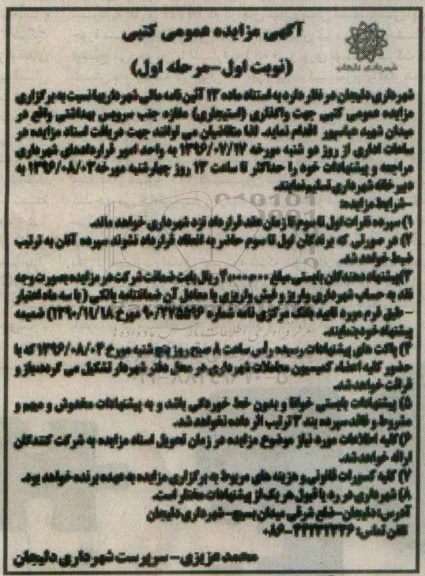 آگهی مزایده عمومی کتبی
(نوبت اول-مرحله اول)
شهرداری دلیجان
شهرداری دلیجان در نظر دارد به استناد ماده ۱۳ آئین نامه مالی شهرداریها نسبت به برگزاری
مزایده عمومی کتبی جهت واگذاری (استیجاری) مغازه جنب سرویس بهداشتی واقع در
میدان شهید عباسپور اقدام نماید. لذا متقاضیان می توانند جهت دریافت اسناد مزایده در
ساعات اداری از روز دو شنبه مورخه ۱۳۹۶/۰۷/۱۷ به واحد امور قراردادهای شهرداری
مراجعه و پیشنهادات خود را حداکثر تا ساعت ۱۳ روز چهارشنبه مورخه ۱۳۹۶/۰۸/۰۳ به
دبیرخانه شهرداری تسلیم نمایند.
-شرایط مزایده:
۱) سپرده نفرات اول تا سوم تا زمان عقد قرارداد نزد شهرداری خواهد ماند.
۲) در صورتی که برندگان اول تا سوم حاضر به انعقاد قرارداد نشوند سپرده آنان به ترتیب
ضبط خواهد شد.
۳) پیشنهاد دهندگان بایستی مبلغ ریال بابت ضمانت شرکت در مزایده بصورت وجه
نقد به حساب شهرداری واریز و فیش واریزی یا معادل آن ضمانتنامه بانکی (با سه ماه اعتبار
- طبق فرم مورد تایید بانک مرکزی نامه شماره مورخ ۱۳۹۰/۱۱/۱۸) ضمیمه
پیشنهاد خود نمایند.
۴) پاکت های پیشنهادات رسیده راس ساعت ۸ صبح روز پنج شنبه مورخ ۱۳۹۶/۰۸/۰۴ که با
حضور کلیه اعضاء کمیسیون معاملات شهرداری در محل دفتر شهردار تشکیل می گردد باز و
قرائت خواهد شد.
۵) پیشنهادات بایستی خوانا و بدون خط خوردگی باشد و به پیشنهادات مخدوش و مبهم و
مشروط و فاقد سپرده بند ۳ ترتیب اثر داده نخواهد شد.
۶) کلیه اطلاعات مورد نیاز موضوع مزایده در زمان تحویل اسناد مزایده به شرکت کنندگان
ارائه خواهد شد.
۷) کلیه کسورات قانونی و هزینه های مربوط به برگزاری مزایده به عهده برنده خواهد بود.
۸) شهرداری در رد یا قبول هر یک از پیشنهادات مختار است.
آدرس: دلیجان-ضلع شرقی میدان بسیج-شهرداری دلیجان
تلفن تماس:
محمد عزیزی-سرپرست شهرداری دلیجان